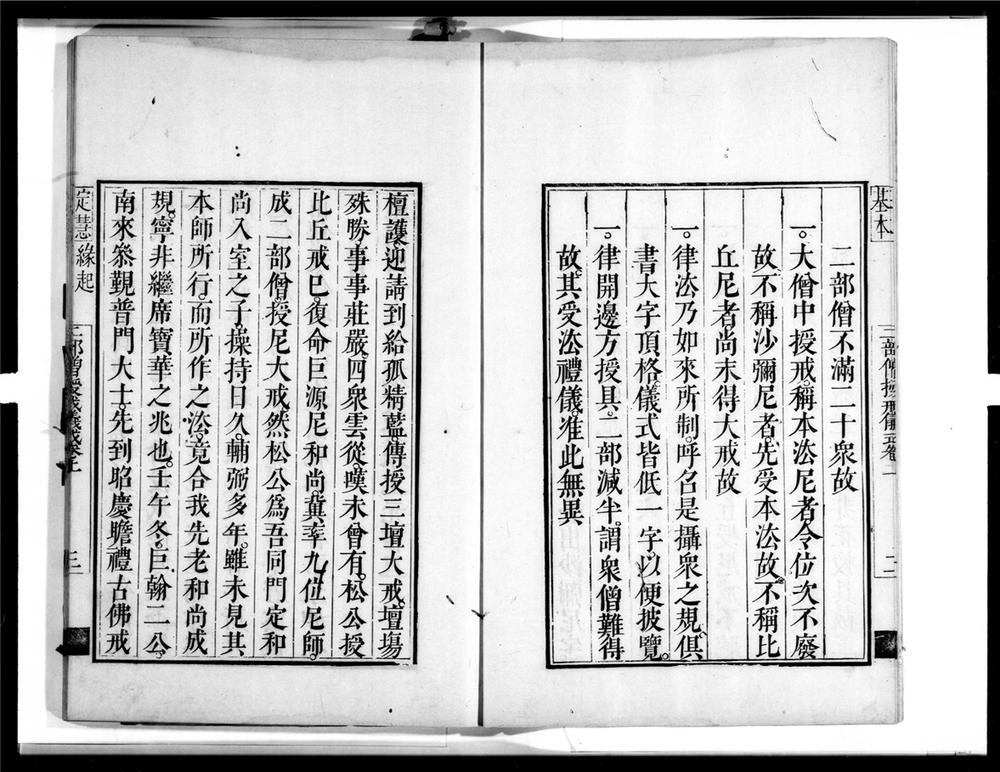 基本
二部僧授戒儀式卷上
二
二部僧不滿二十衆故
一。大僧中授戒。稱本法尼者。令位次不廢
故。不稱沙彌尼者。先受本法故。不稱比
丘尼者。尚未得大戒故
一。律法乃如來所制。呼召是攝衆之規。俱
書大字頂格。儀式皆低一字。以便披覽。
一。律開邊方授具。二部減半。謂衆僧難得
故。其受法禮儀。准此無異
檀護。迎請到給孤精藍。傳授三壇大戒。壇場
殊勝。事事莊嚴。四衆雲從。嘆未曾有。松公授
比丘戒巳。復命巨源尼和尚。冀率九位尼師。
成二部僧。授尼大戒。然松公爲吾同門定和
尚入室之子。操持日久。輔弼多年。雖未見其
本師所行。而所作之法。竟合我先老和尚成
規。寧非繼席寶華之兆也。壬午冬。巨翰二公。
南來叅覲普門大士。先到昭慶瞻禮古佛戒
定慧緣起
二部僧授戒儀式卷上
三